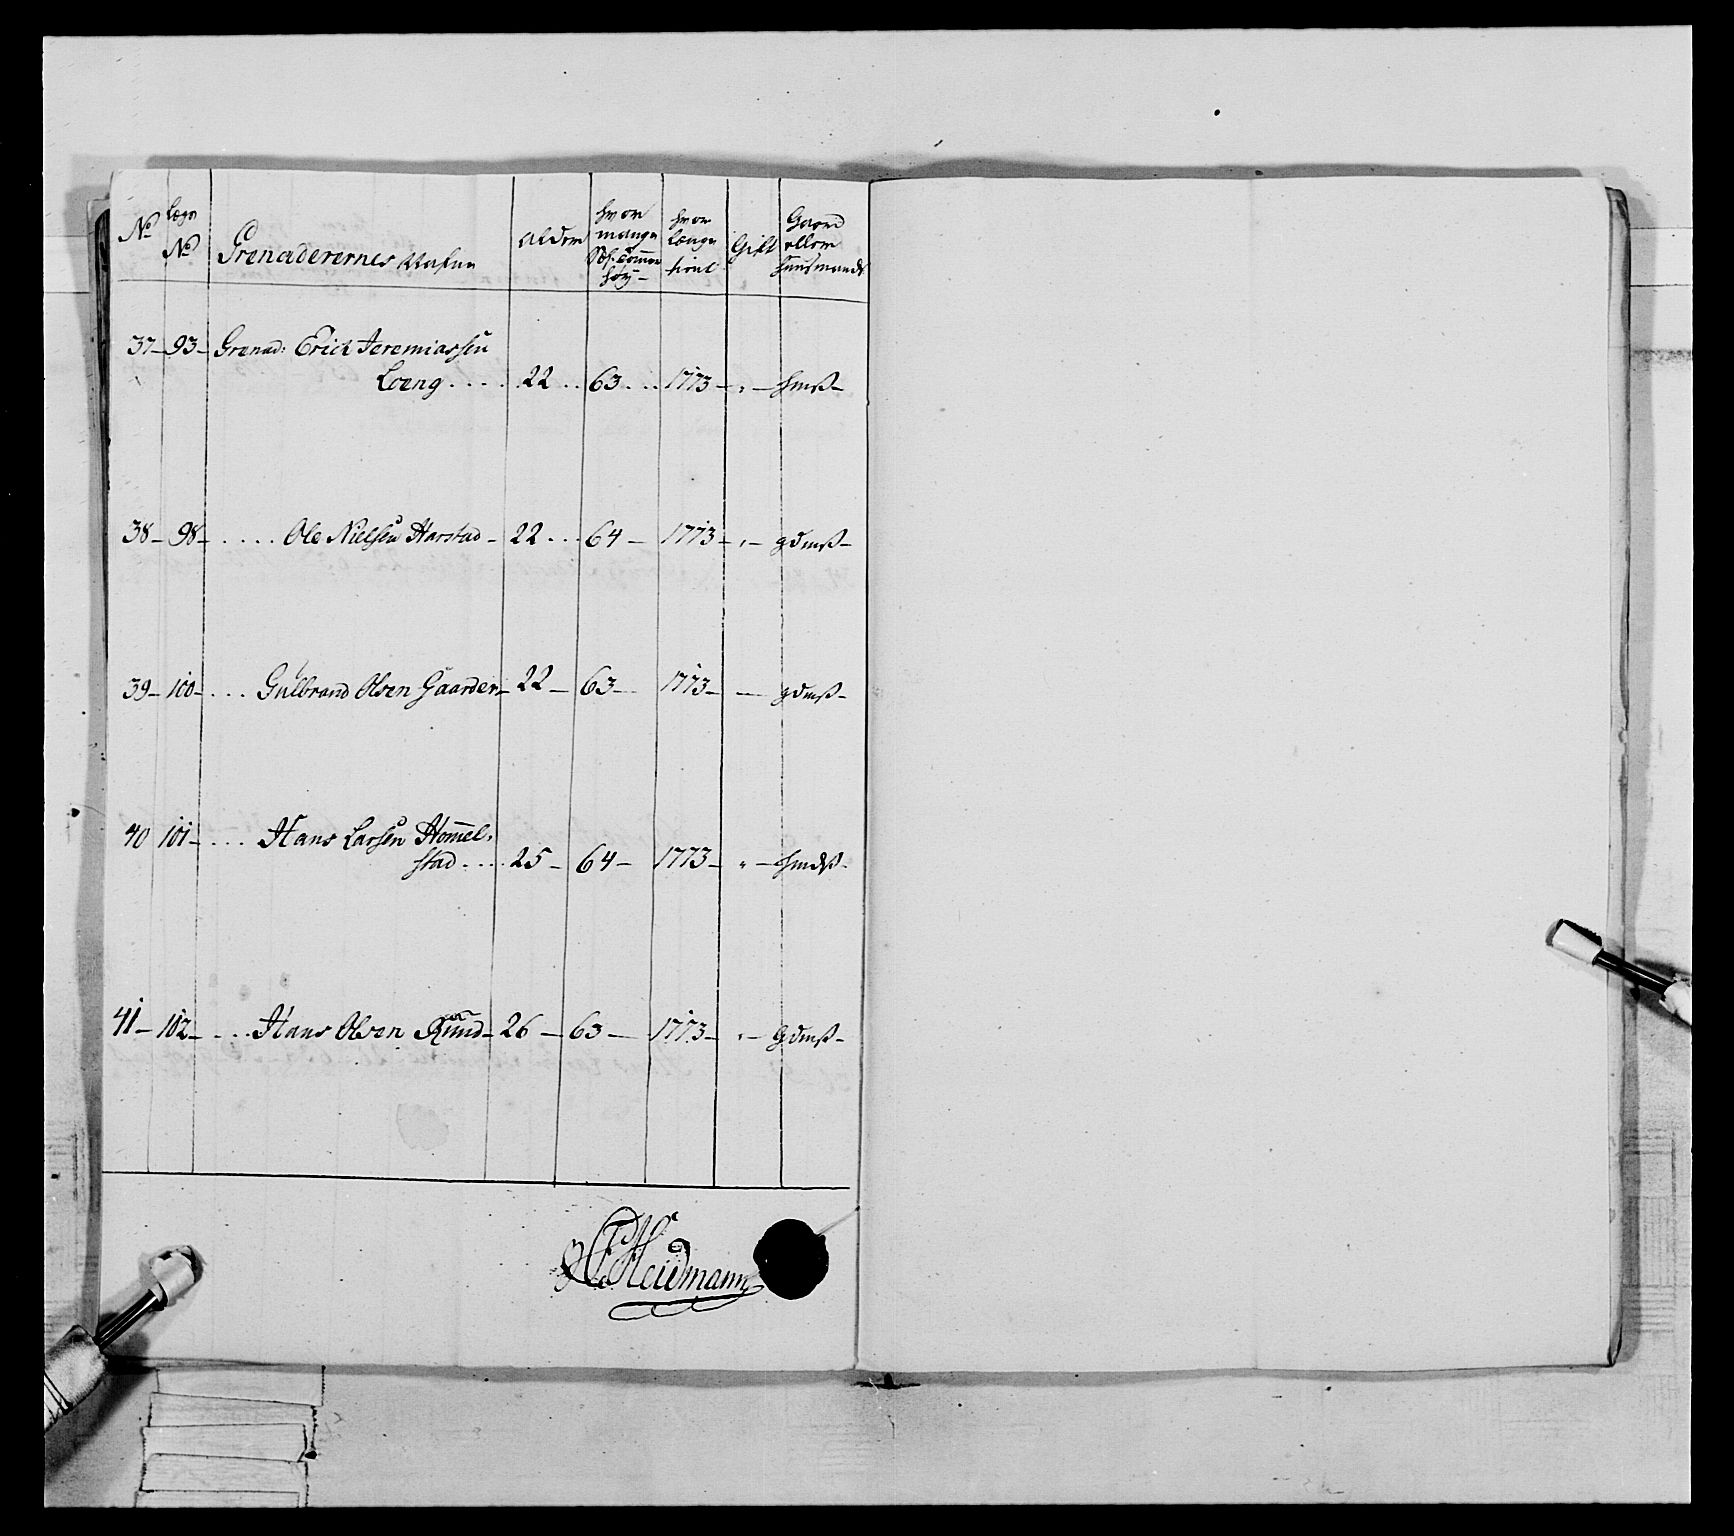 No Lægs No Grenaderernes Nafne Alder hvor mange Sk: Tommer høy hvor længe tient Gift Gaard eller Huusmands
37 – 93 – Grenad: Erich Jeremiassen
Loeng . . . . 22 . . 63 . . . 1773 – " – hmß –
38 – 98 – . . . . Ole Nielsen Harstad – 22 . . . 64 – 1773 – " – gdmß –
39 – 100 – . . . Gulbrand Olsen Gaarder – 22 – 63 – 1773 – – gdmß –
40 101 – . . . Hans Larsen Hommel-
stad . . . . 25 – 64 – 1773 – " – hmdß –
41 – 102 – . . . Hans Olsen Rund – 26 – 63 – 1773 – " – Gdmß –
Heidmann